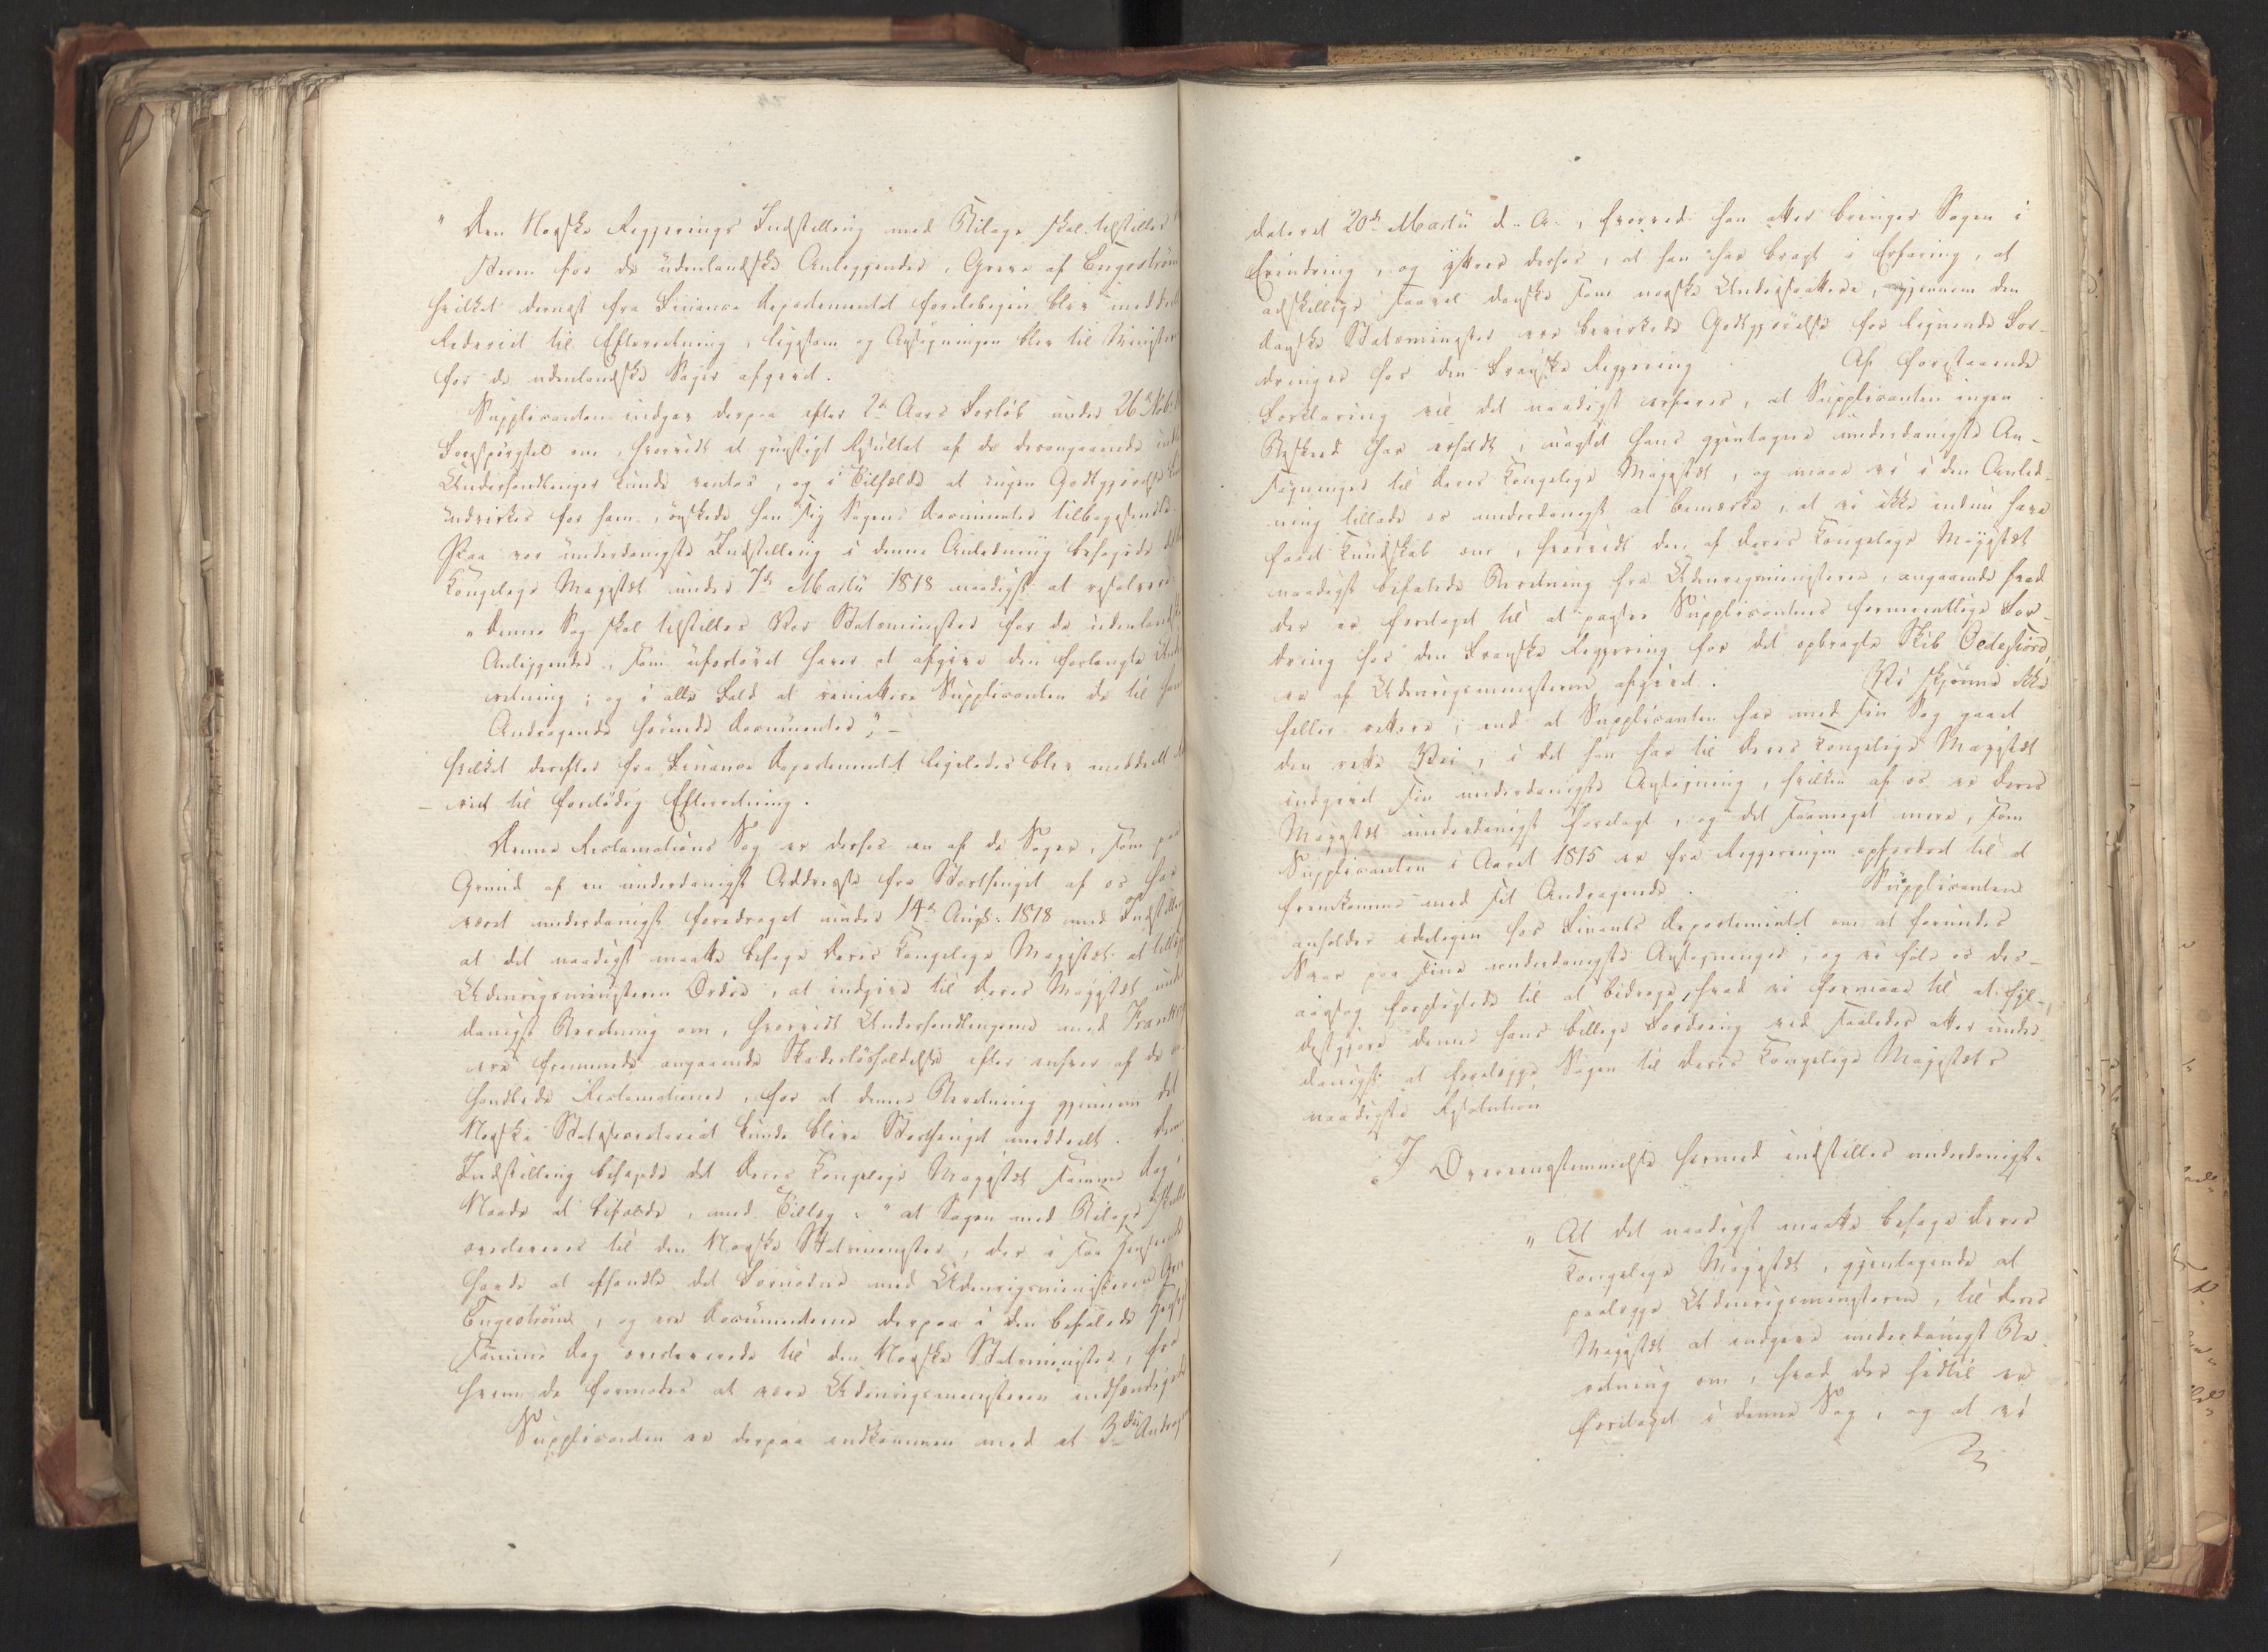 "Den Norske Regjerings Indstilling med Bilage skal tilstilles
for de udenlandske Anliggender, Greve af Engeström
hvilket dernæst fra Finance Departementet foreløbigen blev meddelt
til Efterretning, ligesom og Ansøgningen blev til Ministeren
for de udenlandske Sager afgivet.
Supplicanten indgav derpaa efter 2de Aars Forløb under 26de Novb.
Forespørgsel om, hvorvidt et gunstigt Resultat af de desangaaende
Underhandlinger kunde ventes, og i Tilfælde at ingen Godtgjørelse
udvirkes for ham, ønskede han sig Sagens Documenter tilbagesendte.
Paa vor underdanigste Indstilling i denne Anledning behagede det
Kongelige Majestæt under 7de Martii 1818 naadigst at resolvere
"Denne Sag skal tilstilles Vor Statsminister for de udenlandske
Anliggender, som ufortøvet haver at afgive den forlangte
retning; og i alle Fald at remittere Supplicanten de til hans
Andragende hørende Documenter".-
hvilket derefter fra Finance Departementet ligeledes blev meddeelt
riet til foreløbig Efterretning.
Denne Reclamations Sag er derfor en af de Sager, som paa
Grund af en underdanigst Addresse fra Storthinget af os har
været underdanigst foredraget under 14de Augs: 1818 med Indstilling
at det naadigst maatte behage Deres Kongelige Majestæt at tillægge
Udenrigsministeren Ordre, at indgive til Deres Majestæt under
danigst Beretning om, hvorvidt Underhandlingerne med Frankrig
ere fremmede angaaende Skadesløsholdelse efter enhver af de
handlede Reclamationer, for at denne Beretning gjennem det
Norske Statssecretariat kunde blive Storthinget meddeelt. Denne
Indstilling behagede det Deres Kongelige Majestæt samme Dag i
Naade at bifalde, med Tillæg: "at Sagen med Bilage skulde
overleveres til den Norske Statsminister, der i saa Henseende
havde at afhandle det Fornødne med Udenrigsministeren Greve
Engeström, og ere Documenterne derpaa i den befalede Hensigt
samme Dag overleverede til den Norske Statsminister, fra
hvem de formodes at være Udenrigsministeren indhændigede
Supplicanten er derpaa indkommen med et 3die Andragende
dateret 20de Martii d. A., hvorved han atter bringer Sagen i
Erindring, og yttrer derhos, at han har bragt i Erfaring, at
adskillige saavel danske som norske Undersaatter, gjennem den
danske Statsminister ere bevirkede Godtgjørelse for lignende For-
dringer hos den Franske Regjering. Af forestaaende
Forklaring vil det naadigst erfares, at Supplicanten ingen
Beskeed har erholdt, uagtet hans gjentagne underdanigste An-
søgninger til Deres Kongelige Majestæt, og maae vi i den Anled-
ning tillade os underdanigst at bemærke, at vi ikke endnu have
faaet Kundskab om, hvorvidt den af Deres Kongelige Majestæt
naadigst befalede Beretning fra Udenrigsministeren, angaaende hvad
der er foretaget til at paastaae Supplicantens formeentlige For-
dring hos den Franske Regjering for det opbragte Skib Oedesfiord,
er af Udenrigsministeren afgivet. Vi skjønne ikke
heller rettere, end at Supplicanten har med sin Sag gaaet
den rette Vei, i det han har til Deres Kongelige Majestæt
indgivet sin underdanigste Ansøgning, hvilken af os er Deres
Majestæt underdanigst forelagt, og det saameget mere, som
Supplicanten i Aaret 1815 er fra Regjeringen opfordret til at
fremkomme med sit Andragende. Supplicanten
anholder idelegen hos Finants Departementet om at forundes
Svar paa sine underdanigste Ansøgninger, og vi føle os des-
aarsag forpligtede til at bidrage, hvad vi formaae til at fyl-
destgjøre denne hans billige Fordring ved saaledes atter under-
danigst at forelægge Sagen til Deres Kongelige Majestæts
naadigste Resolution
I Overeensstemmelse hermed indstilles underdanigst:
"At det naadigst maatte behage Deres
Kongelige Majestæt, gjentagende at
paalægge Udenrigsministeren, til Deres
Majestæt at indgive underdanigst Be-
retning om, hvad der hidtil er
foretaget i denne Sag, og at vi